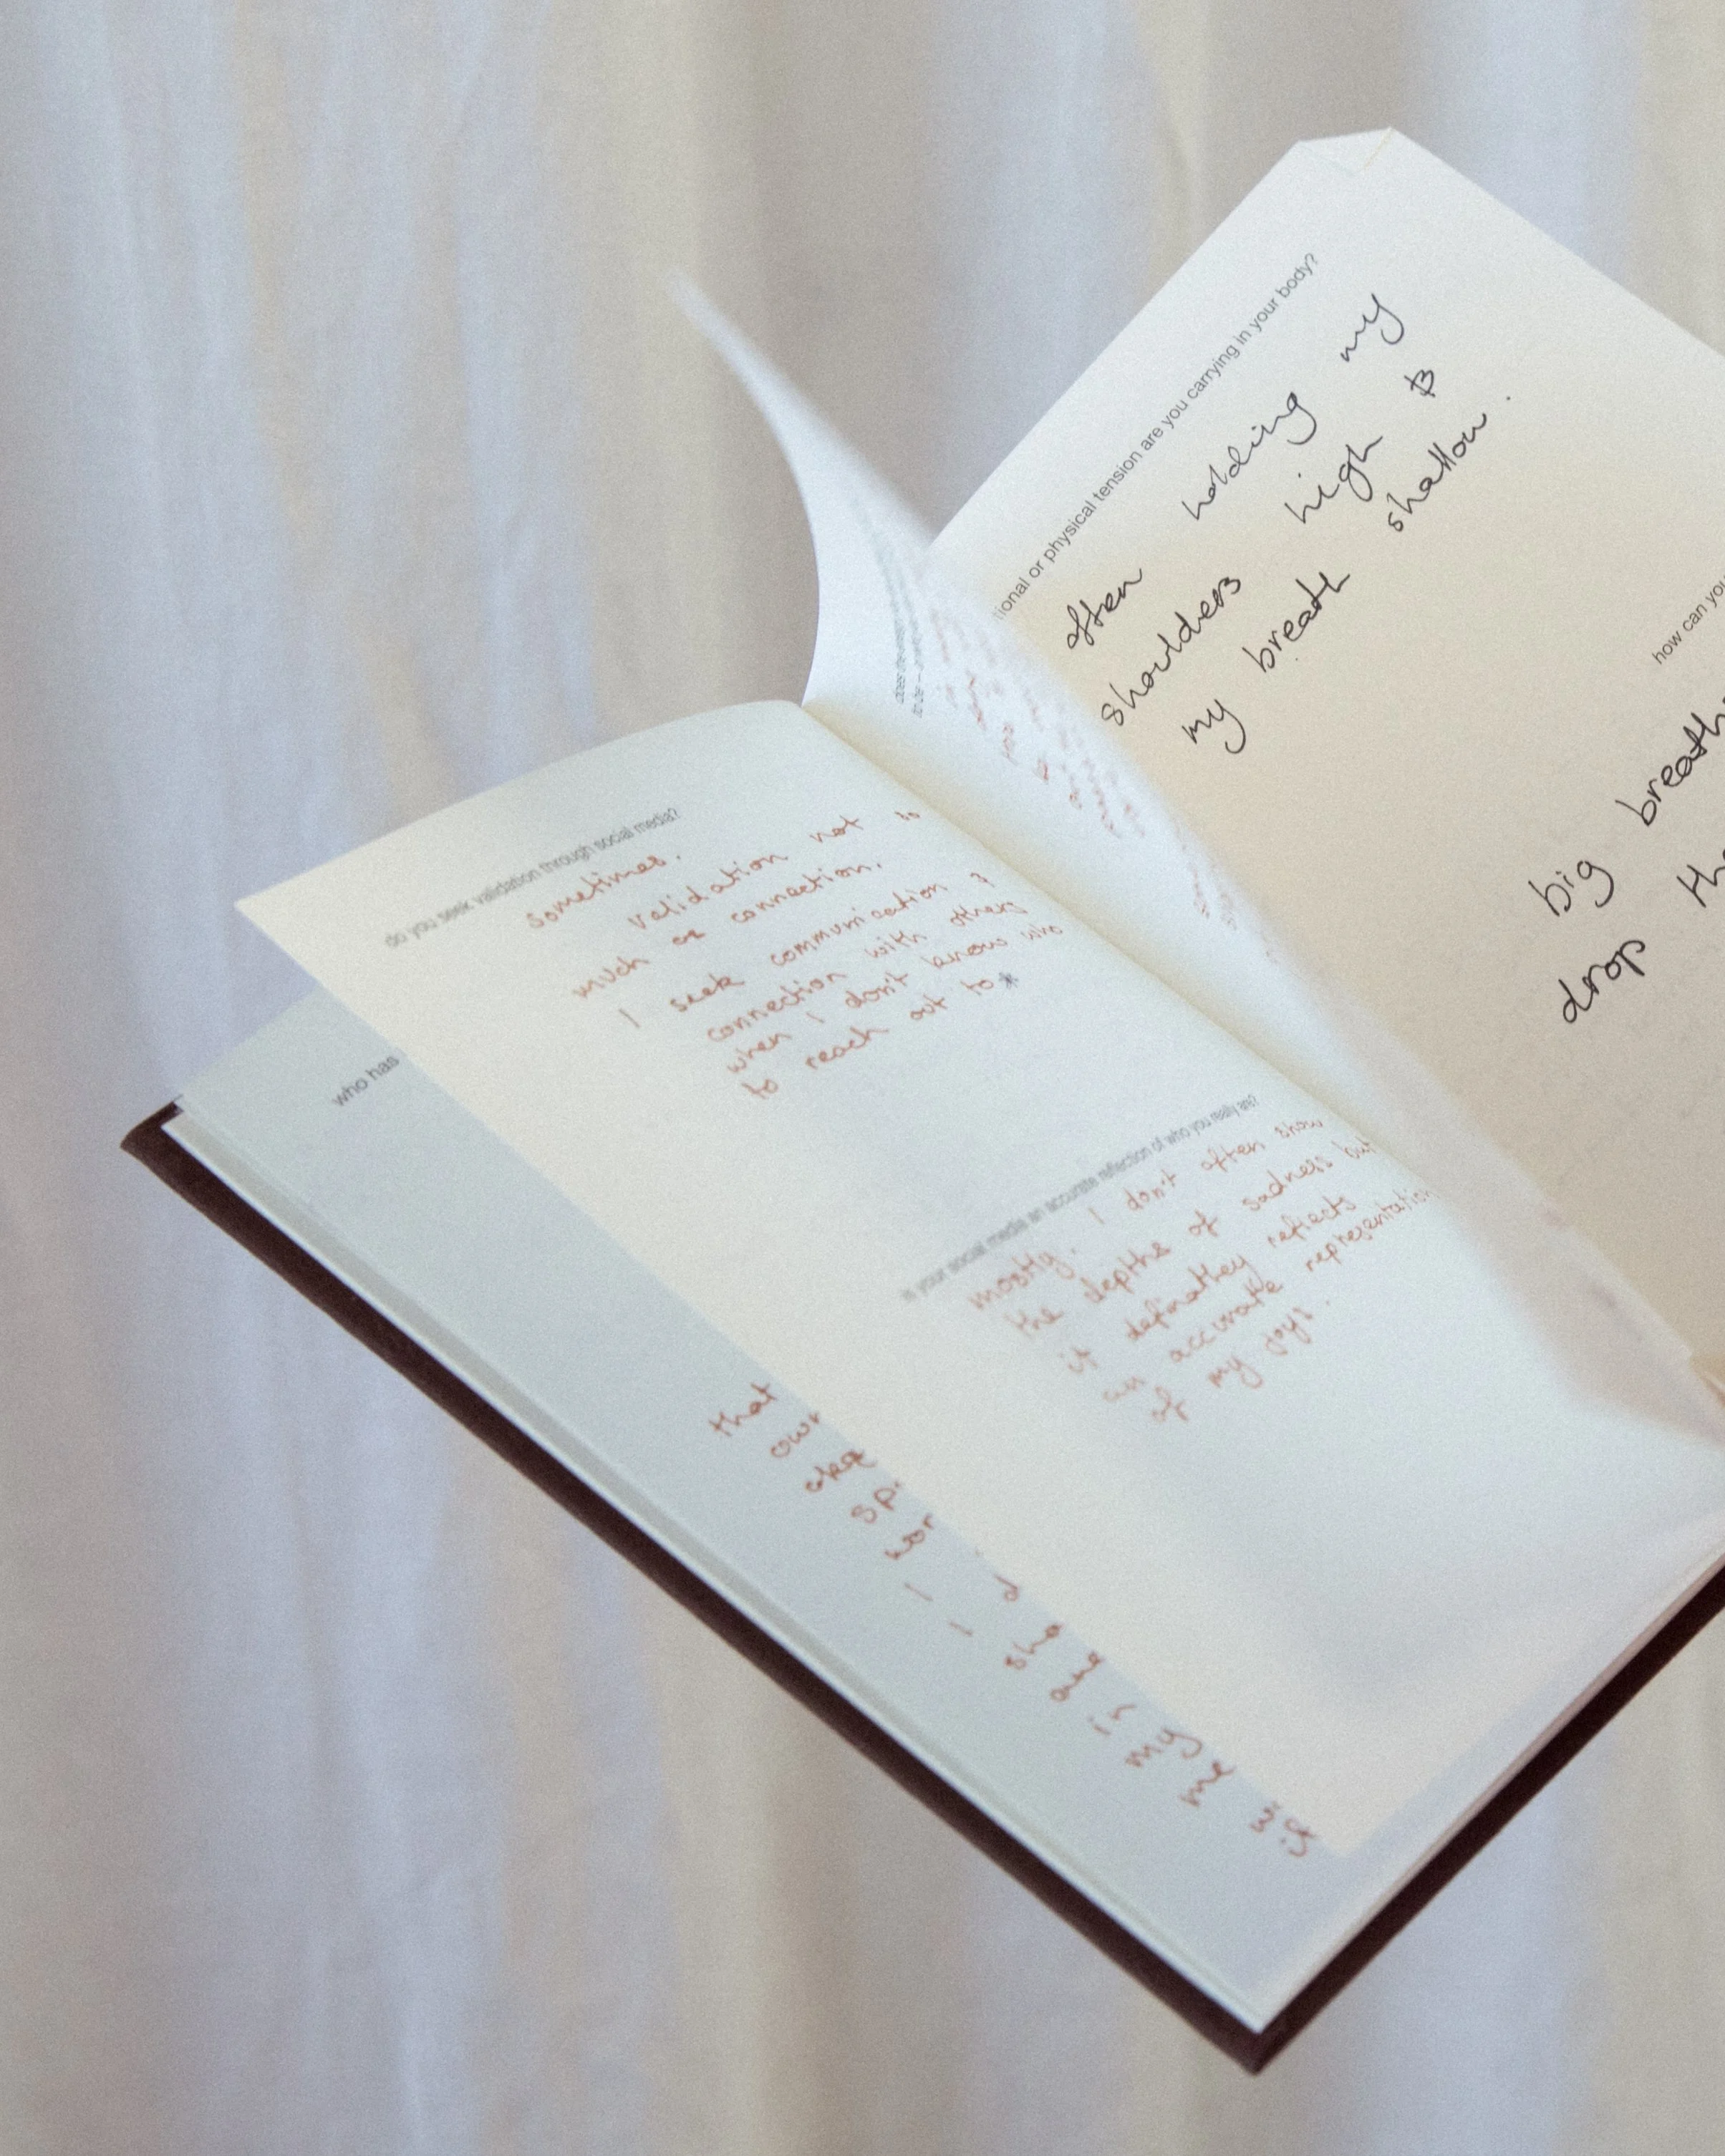 do you seek validation through social media?
sometimes.
validation not so
much as connection.
I seek communication &
connection with others
when I don't know who
to reach out to*
is your social media an accurate reflection of who you really are?
mostly. I don't often show
the depths of sadness but
it definatley reflects
an accurate representation
of my joys.
who has
that
own
spi
wor
I
I
sha
in
my
me
wi
it
tional or physical tension are you carrying in your body?
often holding my
shoulders high &
my breath shallow.
how can you
big breath
drop the